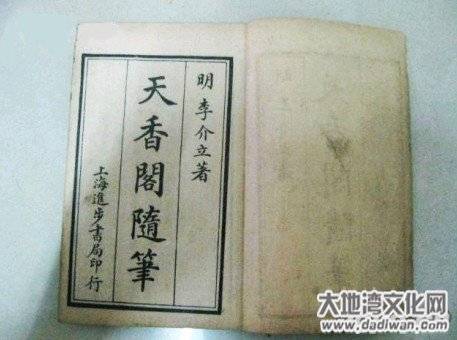 明李介立著
天香閣隨筆
上海進步書局印行
大地湾文化网
www.dadiwan.com